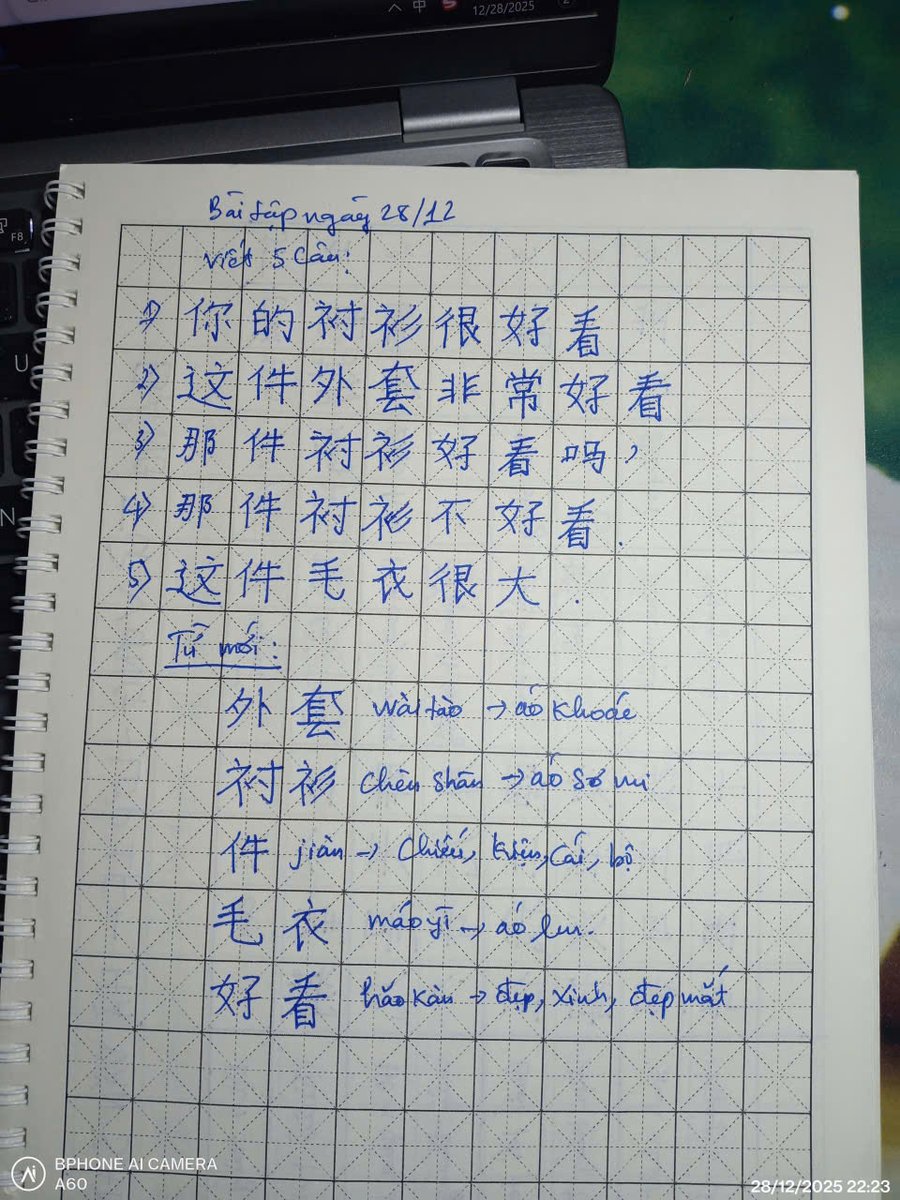 中
12/28/2025
F8
U
N
Bài tập ngày 28/12
Viết 5 câu:
1) 你的衬衫很好看
2) 这件外套非常好看
3) 那件衬衫好看吗,
4) 那件衬衫不好看.
5) 这件毛衣很大.
Từ mới:
外套 wài tào → áo khoác
衬衫 chèn shān → áo sơ mi
件 jiàn → chiếc, kiện, cái, bộ
毛衣 máo yī → áo len.
好看 hǎo kàn → đẹp, xinh, đẹp mắt
BPHONE AI CAMERA
A60
28/12/2025 22:23